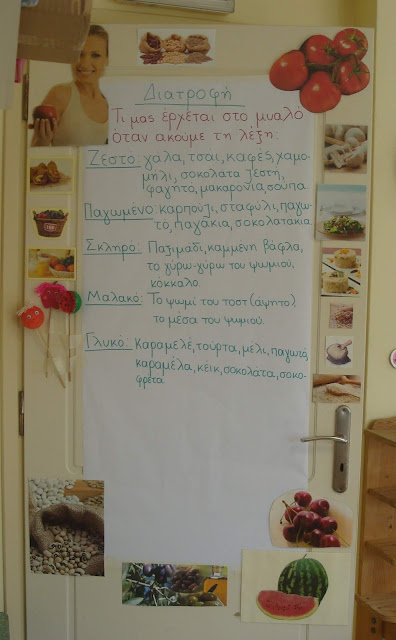 Διατροφή
Τι μας έρχεται στο μυαλό
όταν ακούμε τη λέξη:
Ζεστό: γάλα, τσάι, καφές, χαμο-
μήλι, σοκολάτα ζεστή,
φαγητό, μακαρόνια, σούπα.
Παγωμένο: καρπούζι, σταφύλι, παγω-
τό, παγάκια, σοκολατάκια.
Σκληρό: Παξιμάδι, καμμένη βάφλα,
το γύρω-γύρω του ψωμιού,
κόκκαλο.
Μαλακό: Το ψωμί του τοστ (άψητο)
το μέσα του ψωμιού.
Γλυκό: Καραμελέ, τούρτα, μέλι, παγωτό,
καραμέλα, κέικ, σοκολάτα, σοκο-
φρέτα